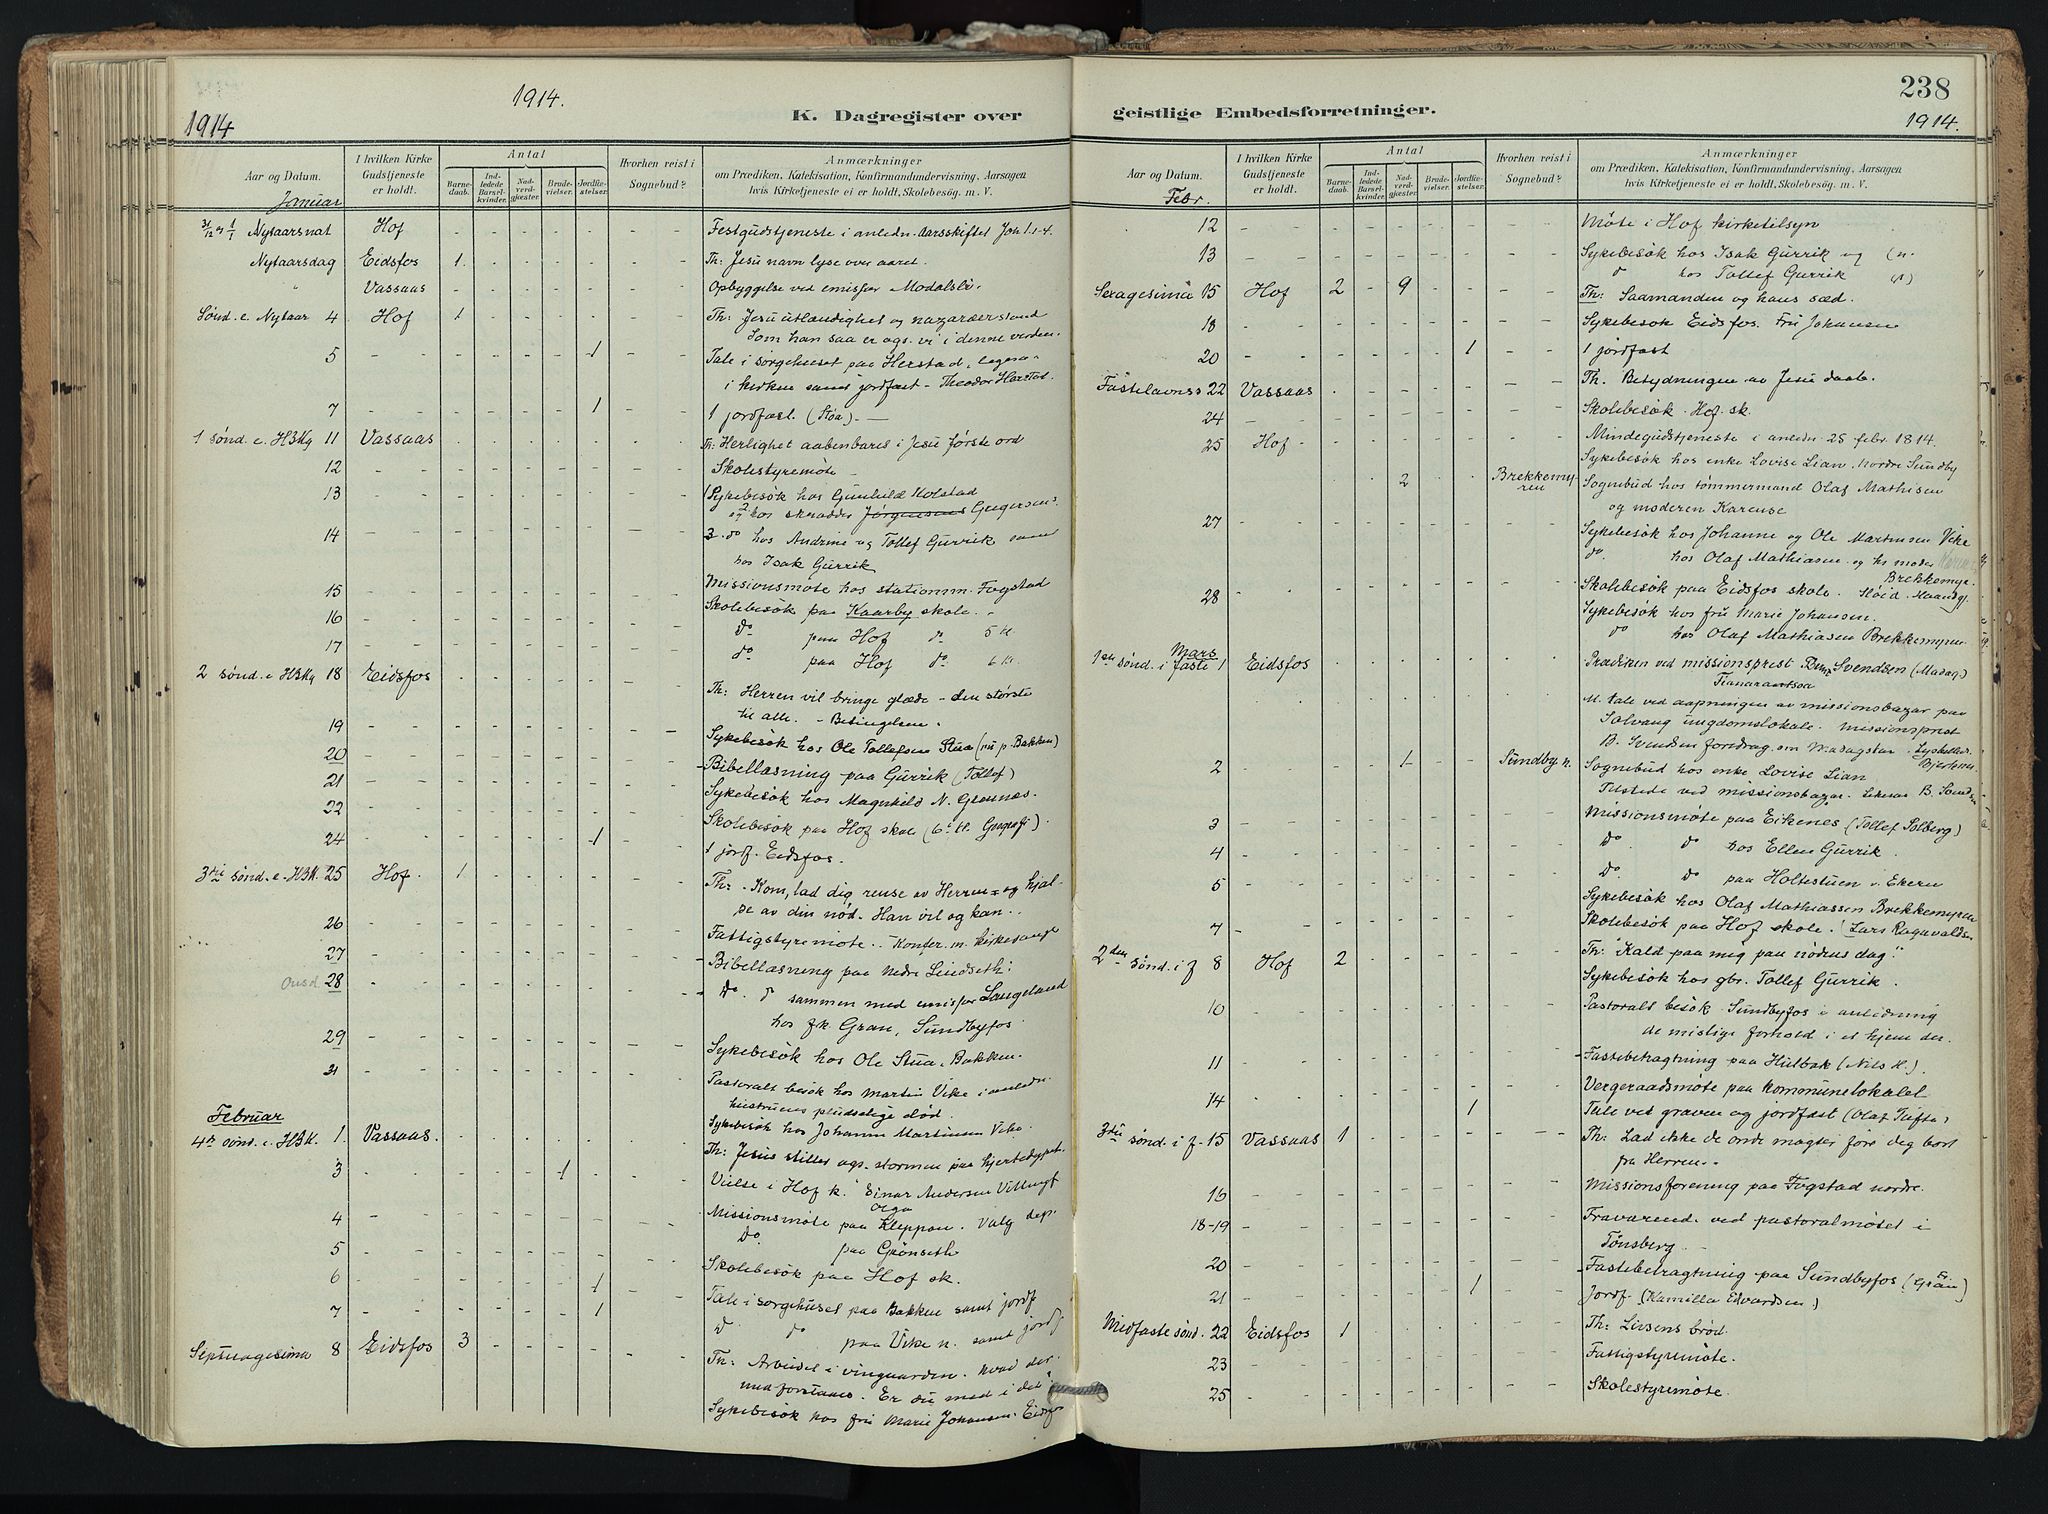 1914.
1914
K. Dagregister over
Aar og Datum.
I hvilken Kirke Gudstjeneste er holdt.
Antal
Barnedaab.
Indledede Barselkvinder.
Nadverdgjester.
Brudevielser.
Jordfæstelser.
Hvorhen reist i Sognebud?
Anmærkninger
om Prædiken, Katekisation, Konfirmandundervisning, Aarsagen
hvis Kirketjeneste ei er holdt, Skolebesøg m. V.
Januar
31/12 og 1/1 Nytaarsnat Hof - - - - - - Festgudstjeneste i anledn. Aarsskiftet Joh 1.1-4.
Nytaarsdag Eidsfos 1 - - - - - Th: Jesu navn lyse over aaret.
" Vassaas - - - - - - Opbyggelse ved emissær Modalsli.
Sønd. e. Nytaar 4 Hof 1 - - - - - Th: Jesu utlændighet og nazaræerstand
Som han saa er ogs. vi i denne verden.
5 - - - - - 1 - Tale i sørgehuset paa Herstad,
i kirken samt jordfæst - Theodor Herstad.
7 - - - - - 1 - 1 jordfæst. (Støa)
1 sønd. e. H3Kg 11 Vassaas - - - - - - Th: Herlighet aabenbaret i Jesu første ord
12 - Skolestyremøte
13 - Sykebesøk hos Gunhild Holstad
og hos skrædder Jørgensens Gregersen.
14 - do hos Andrine og Tollef Gurrik samt
hos Isak Gurrik
15 - Missionsmøte hos stationsm. Fogstad
16 - Skolebesøk paa Kaarby skole.
do paa Hof do 5 kl.
17 - do paa Hof do 6 kl.
2 sønd. e H3Kg 18 Eidsfos - Th: Herren vil bringe glæde - den største
til alle. - Betingelsen.
19 - Sykebesøk hos Ole Tollefsen Stua (nu p. Bakken)
20 - Bibellæsning paa Gurrik (Tollef)
21 - Sykebesøk hos Magnhild N. Grønnæs.
22 - Skolebesøk paa Hof skole (6te kl. Geografi).
24 - 1 - 1 jorf. Eidsfos.
3die sønd. e. H3K. 25 Hof. 1 - Th: - Kom, lad dig rense av Herren - og hjælpe
av din nød. Han vil og kan.
26 - Fattigstyremøte. - Konfer. m. kirkesanger
27 - Bibellæsning paa nedre Lindseth:
Onsd. 28 - do. do sammen med emissær Langeland
hos fk. Gran, Sundbyfos
29 - Sykebesøk hos Ole Stua, Bakken.
31 - Pastoralt besøk hos Martin Vike i anledn.
hustruens pludselige død.
Februar
Sykebesøk hos Johanne Martinsen Vike.
4de sønd. e. H3K. 1. Vassaas. - Th: Jesus stiller ogs. stormen paa hjertedypet.
3 - 1 - Vielse i Hof k. Einar Andersen
Olga
4 - Missionsmøte paa Kleppan. Valg dep.
5 - do. paa Grønseth
6 - 1 - Skolebesøk paa Hof sk.
7 - 1 - Tale i sørgehuset paa Bakken samt jordf
do do paa Vike n. samt jordf
Septuagesima 8 Eidsfos 3 - Th: Arbeidet i vingaarden.
Er du med i det?
Sykebesøk hos fru Marie Johansen. Eidsfos
238
1914.
geistlige Embedsforretninger.
Aar og Datum.
I hvilken Kirke Gudstjeneste er holdt.
Antal
Barnedaab.
Indledede Barselkvinder.
Nadverdgjester.
Brudevielser.
Jordfæstelser.
Hvorhen reist i Sognebud?
Anmærkninger
om Prædiken, Katekisation, Konfirmandundervisning, Aarsagen
hvis Kirketjeneste ei er holdt, Skolebesøg m. V.
Febr.
12 - Møte i Hof kirketilsyn
13 - Sykebesøk hos Isak Gurrik og
do hos Tollef Gurrik
Sexagesima 15 Hof 2 - 9 - Th: Saamanden og hans sæd.
18 - Sykebesøk Eidsfos. Fru Johansen
20 - 1 - 1 jordfæst
Fastelavnss 22 Vassaas - Th. Betydningen av Jesu daab.
24 - Skolebesøk. Hof sk.
25 Hof - Mindegudstjeneste i anledn. 25 febr. 1814.
Sykebesøk hos enke Lovise Lian. Nordre Sundby
2 - Brekkemyren Sognebud hos tømmermand Olaf Mathisen
og moderen Karense
27 - Sykebesøk hos Johanne og Ole Martinsen Vike
do. hos Olaf Mathiasen og hs moder
Brekkemyr.
28 - Skolebesøk paa Eidsfos skole. Sløid.
Sykebesøk hos fru Marie Johansen.
do hos Olaf Mathiasen Brekkemyren
Mars
1ste sønd. i faste 1 Eidsfos - Prædiken ved missionsprest Svendsen (Madag.)
Fianarantsoa
M. tale ved aapningen av missionsbazar paa
Solvang ungdomslokale. Missionsprest
B. Svendsen foredrag om Madagskar.
2 - 1 - Sundby n. Sognebud hos enke Lovise Lian
Tilstede ved missionsbazar.
3 - Missionsmøte paa Eikenes (Tollef Solberg)
4 - do. do hos Ellen Gurrik.
5 - do. do paa Holtestuen v. Ekern
Sykebesøk hos Olaf Mathiassen Brekkemyren
7 - Skolebesøk paa Hof skole. (Lars Ragnvaldsen
2den sønd. i f 8 Hof 2 - Th: "Kald paa mig paa nødens dag."
Sykebesøk hos gbr. Tollef Gurrik.
10 - Pastoralt besøk Sundbyfos i anledning
de mislige forhold i et hjem der.
11 - Fastebetragtning paa Hulbak (Nils H.).
Vergeraadsmøte paa kommunelokalet
14 - 1 - Tale ved graven og jordfæst (Olaf Tufte)
3die sønd. i f. 15 Vassaas 1 - Th: Lad ikke de onde magter føre deg bort
fra Herren.
16 - Missionsforening paa Fogstad nordre.
18-19 - Fraværende ved pastoralmøtet i
Tønsberg.
20 - Fastebetragtning paa Sundbyfos (Gran)
21 - 1 - Jordf. (Kamilla Edvardsen)
Midfaste sønd. 22 Eidsfos 1 - Th: Livsens brød.
23 - Fattigstyremøte.
25 - Skolestyremøte.